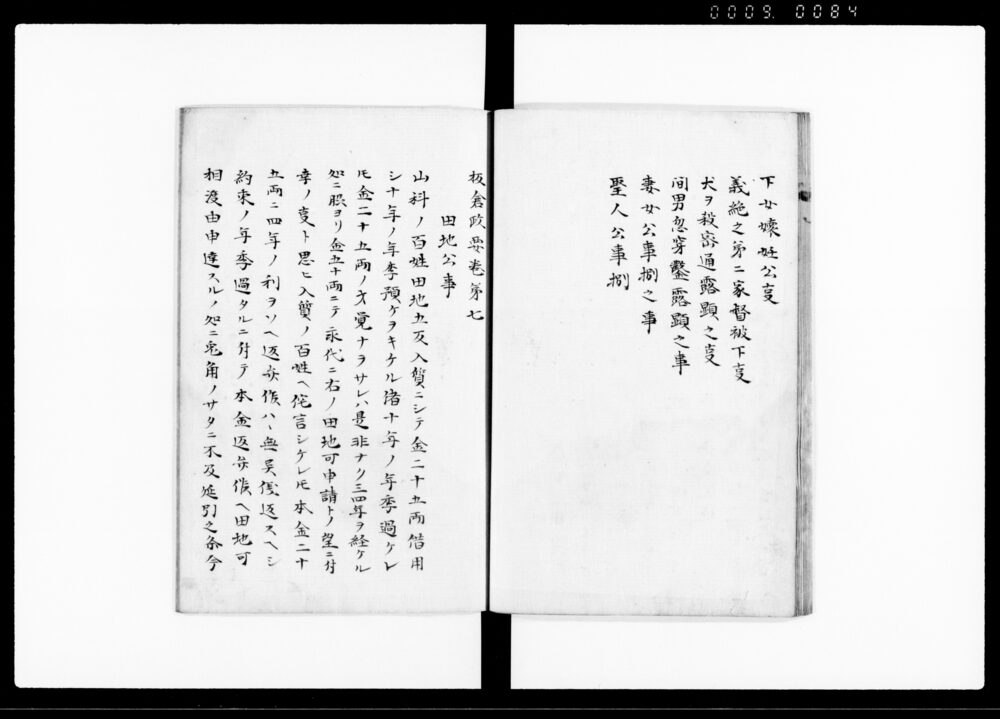 0009 0084
下女懐妊公叓
義絶之弟ニ家督被下叓
犬ヲ殺密通露顕之叓
間男忽穿鑿露顕之事
妻女公事捌之事
聖人公事捌
板倉政要巻第七
田地公事
山科ノ百姓田地五反入質ニシテ金二十五両借用
シ十年ノ年季預ケヲキケル渚十年ノ年季過ケレ
𪜈金二十五両ノ才覚ナヲサレハ是非ナク三四年ヲ経ケル
処ニ脇ヨリ金五十両ニテ永代ニ右ノ田地可申請トノ望ニ付
幸ノ叓ト思ヒ入質ノ百姓ヘ侘言シケレ𪜈本金二十
五両ニ四年ノ利ヲソヘ返弁候ハヽ無異儀返スヘシ
約束ノ年季過タルニ付テ本金返弁候ヘ田地可
相渡由申達スルノ処ニ兎角ノサタニ不及延引之条今